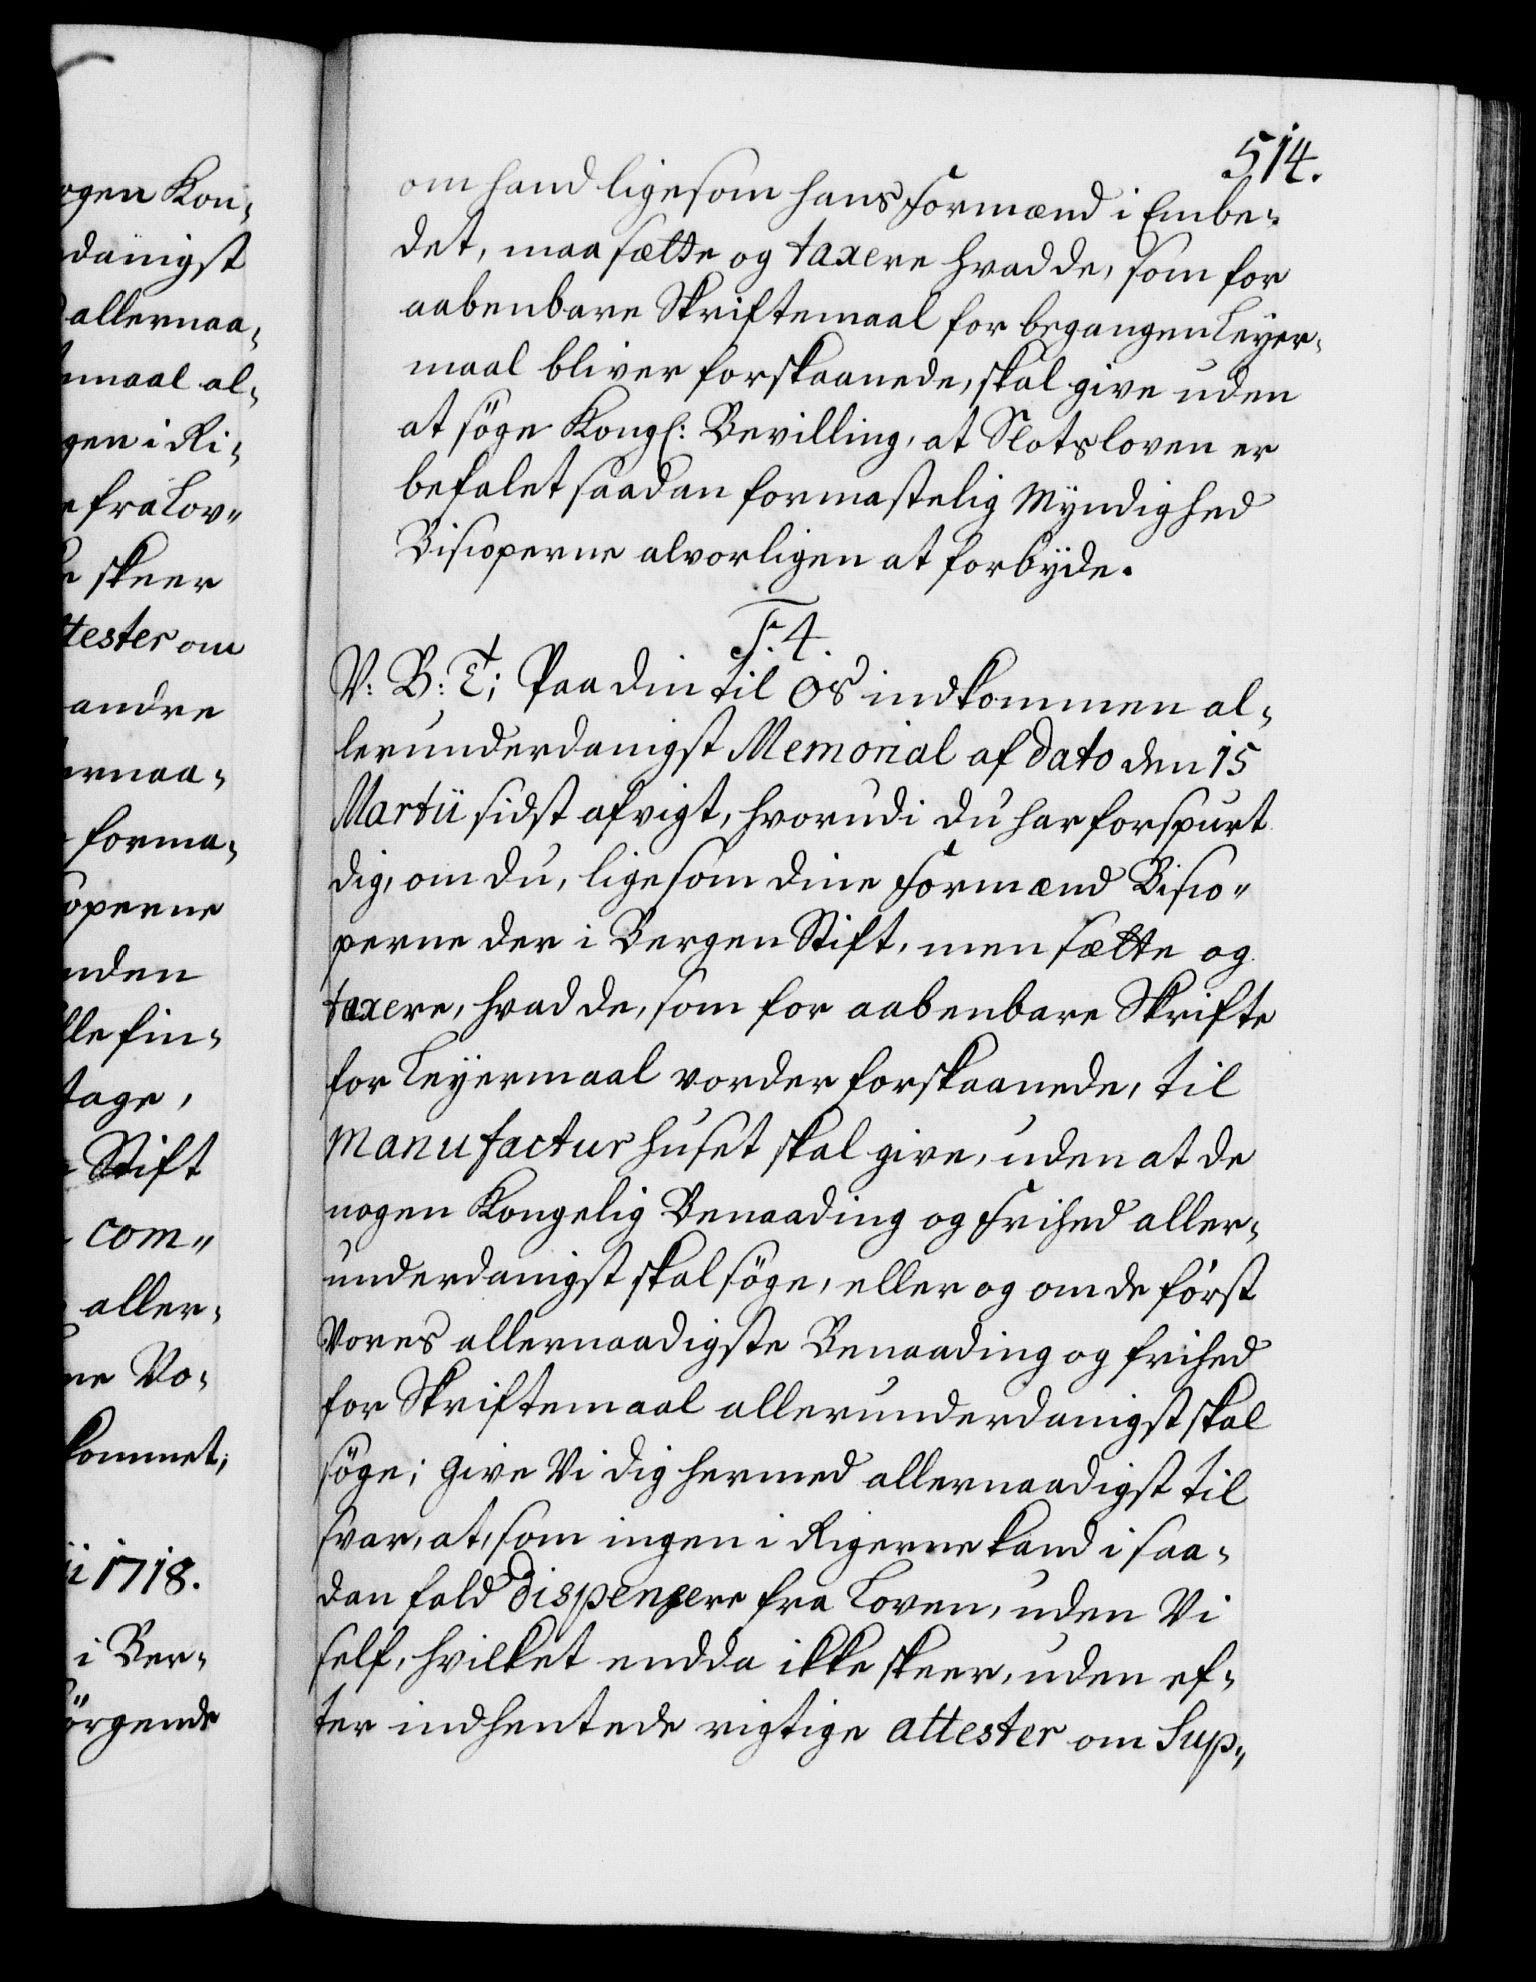 ogen Kon-
danigst
allernaa-
maal al-
gen i Ri-
e fra Lov-
skeer
ttester om
andre
ernaa-
forma-
operne
nden
lle fin-
tage,
Stift
com-
aller-
ne Vo-
kommet;
ii 1718.
i Ber-
örgende
514.
om hand ligesom hans Formænd i Embe-
det, maa sætte og taxere hvad de, som for
aabenbare Skriftemaal for begangen Leÿer-
maal bliver forskaanede, skal give uden
at söge Kongl: Bevilling, at Slotsloven er
befalet saadan formastelig Mÿndighed
Biscoperne alvorligen at forbÿde.
F. 4.
V: B: T; Paa din til Os indkommen al-
lerunderdanigst Memorial af dato den 15
Martii sidst afvigt, hvorudi du har forspurt
dig, om du, ligesom dine Formænd Bisco-
perne der i Bergen Stift, men sætte og
taxere, hvad de, som for aabenbare Skrifte
for Leÿermaal vorder forskaanede, til
Manufactur huset skal give, uden at de
nogen Kongelig Benaading og Frihed aller-
underdanigst skal söge, eller og om de först
Vores allernaadigste Benaading og frihed
for Skriftemaal allerunderdanigst skal
söge; Give Vi dig hermed allernaadigst til
svar, at, som ingen i Rigerne kand i saa-
dan fald dispensere fra Loven, uden Vi
self, hvilket endda ikke skeer, uden ef-
ter indhentede rigtige attester om Sup-